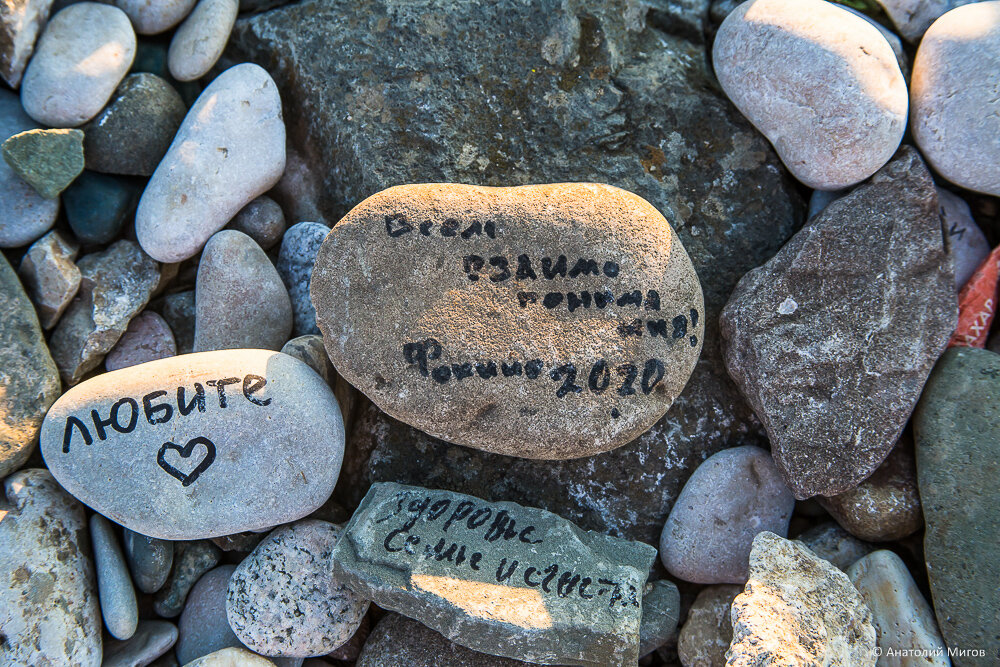 Всем
взаимо
понима
ния!
Фокино 2020
ЛЮБИТЕ
Здоровье
Семье и счастья
АХАР
© Анатолий Мигов